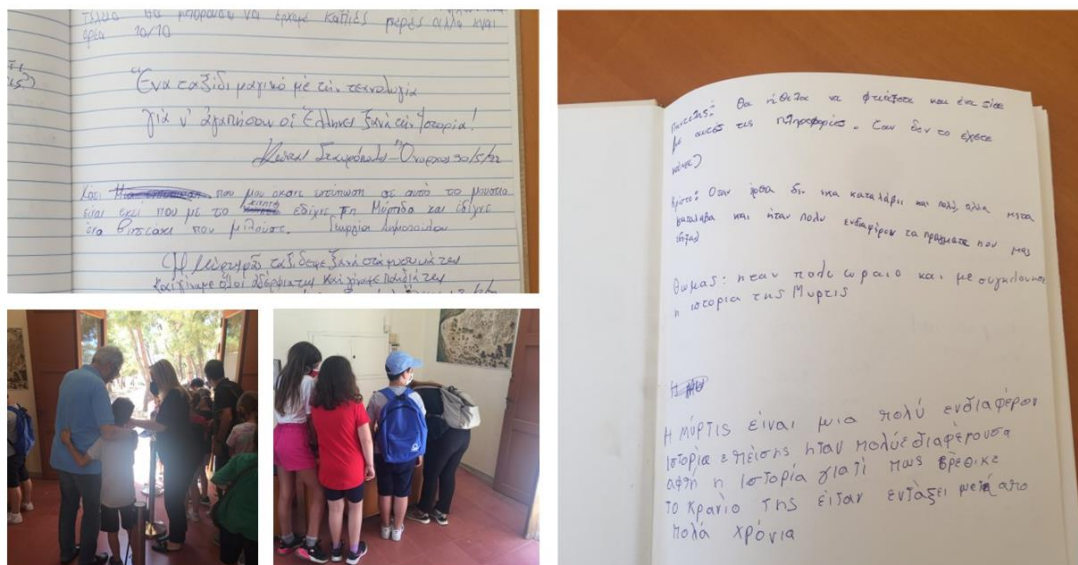 τέλεια θα μπορούσα να έρχομε κάποιες μέρες αλλά ήταν
ωραία 10/10
Ένα ταξίδι μαγικό με την τεχνολογία
για ν' αγαπήσουν οι Έλληνες ξανά την Ιστορία!
30/5/22
Κάτι που μου έκανε εντύπωση σε αυτό το μουσείο
είναι εκεί που με το κινητό εδιχνε τη Μύρτιδα και έδιχνε
ένα βιντεάκι που μιλούσε. Γεωργία Δημοπούλου
Η Μύρτις
και γίναμε όλοι
θα ήθελα να φτιάξετε και ένα
με αυτές τις πληροφορίες. Εαν δεν το έχετε
κάνει)
Χρίστος: Οταν ήρθα δεν ικα καταλάβει και πολύ, αλλα μετα
κατάλαβα και ήταν πολυ ενδιαφέρον τα πράγματα που μας
Θωμας: ηταν πολι ωραιο και με συγκίνησε
η ιστορια της Μυρτις
Η μύρτις είναι μια πολύ ενδιαφέρον
ιστορία επεισης ηταν πολύ εδιαφέρουσα
αφτή η ιστορία γιατί πως βρέθικε
το κρανίο της είταν εντάξει μετά απο
πολά χρόνια